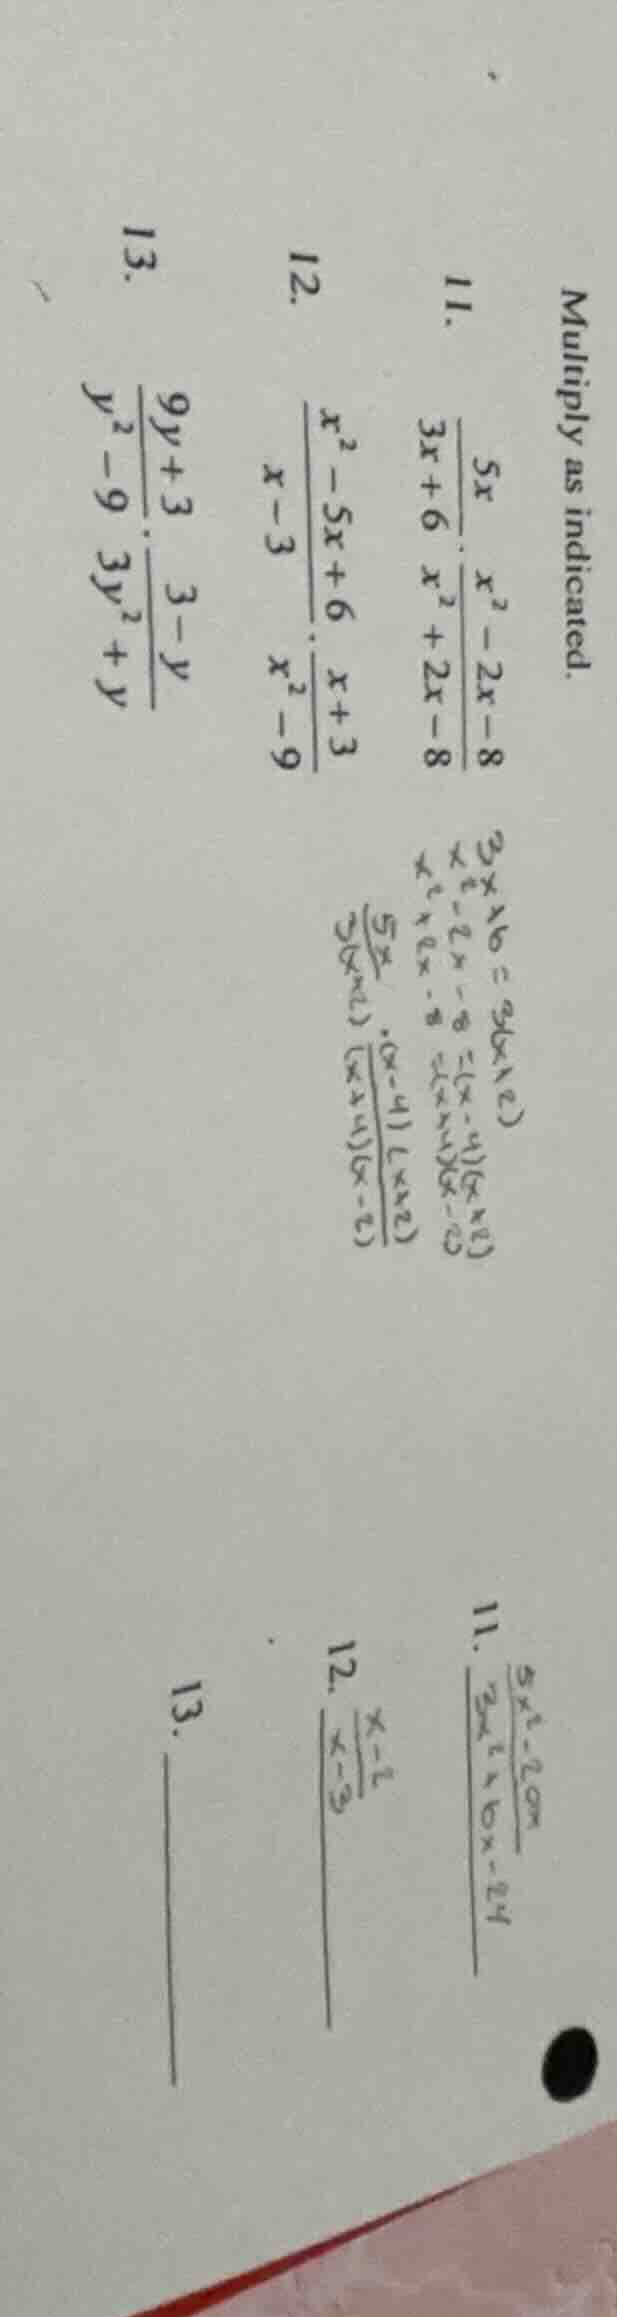 Multiply as indicated.
11. 5x/(3x + 6) · (x² − 2x − 8)/(x² + 2x − 8)
3x+6 = 3(x+2)
x²-2x-8 = (x-4)(x+2)
x²+2x-8 = (x+4)(x-2)
5x/3(x+2) · (x-4)(x+2)/(x+4)(x-2)
11. 5x²-20x/3x²+6x-24
12. (x² − 5x + 6)/(x − 3) · (x + 3)/(x² − 9)
12. x-2/x-3
13. (9y + 3)/(y² − 9) · (3 − y)/(3y² + y)
13.